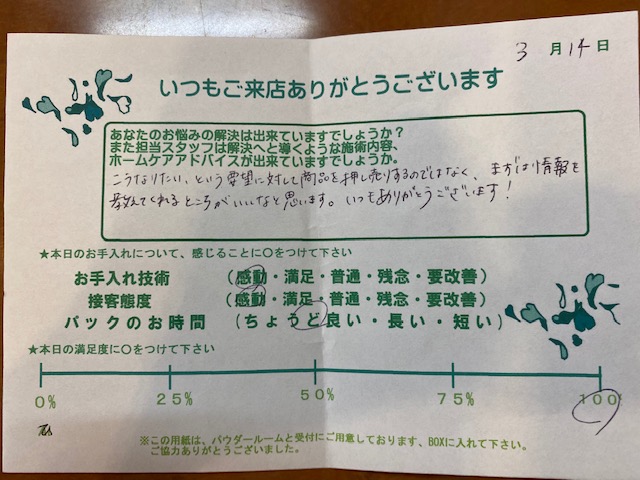 3月14日
いつもご来店ありがとうございます
あなたのお悩みの解決は出来ていますでしょうか?
また担当スタッフは解決へと導くような施術内容、
ホームケアアドバイスが出来ていますでしょうか。
こうなりたい、という要望に対して商品を押し売りするのではなく、まずは情報を
教えてくれるところがいいなと思います。いつもありがとうございます!
★本日のお手入れについて、感じることに○をつけて下さい
お手入れ技術 (感動・満足・普通・残念・要改善)
接客態度 (感動・満足・普通・残念・要改善)
パックのお時間 (ちょうど良い・長い・短い)
★本日の満足度に○をつけて下さい
0% 25% 50% 75% 100
※この用紙は、パウダールームと受付にご用意しております、BOXに入れて下さい。
ご協力ありがとうございました。